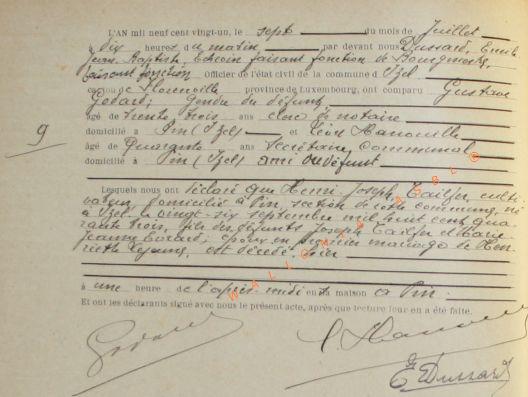 L'AN mil neuf cent vingt-un, le sept du mois de Juillet
à dix heures du matin par devant nous Dussard, Emile
Jean Baptiste, Echevin faisant fonction de Bourgmestre,
faisant fonction officier de l'état civil de la commune d'Izel
canton de Florenville province de luxembourg, ont comparu Gustave
Godard; gendre du défunt,
âgé de trente trois ans clerc de notaire
domicilié à Pin (Izel) et Léon Hanouille
âgé de Quarante ans Secrétaire Communal
domicilié à Pin (Izel) ami du défunt
Lesquels nous ont déclaré que Henri Joseph, culti
vateur, domicilié à Pin, section de cette commune, né
à Izel le vingt-six septembre mil huit cent qua
rante trois, fils des défunts Joseph et Marie
Jeanne; en premier mariage de Hen
riette Lejeune, est décédé hier
à une heure de l'après-midi en sa maison à Pin.
Et ont les déclarants signé avec nous le présent acte, après que lecture leur en a été faite.
9
Godard
E Dussard